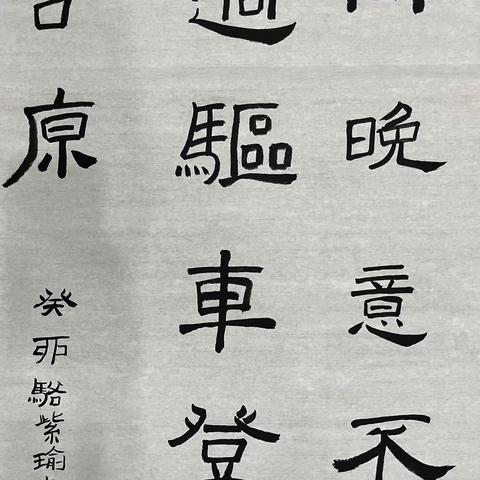 晚意不
適驅車登
古原
癸卯駱紫瑜